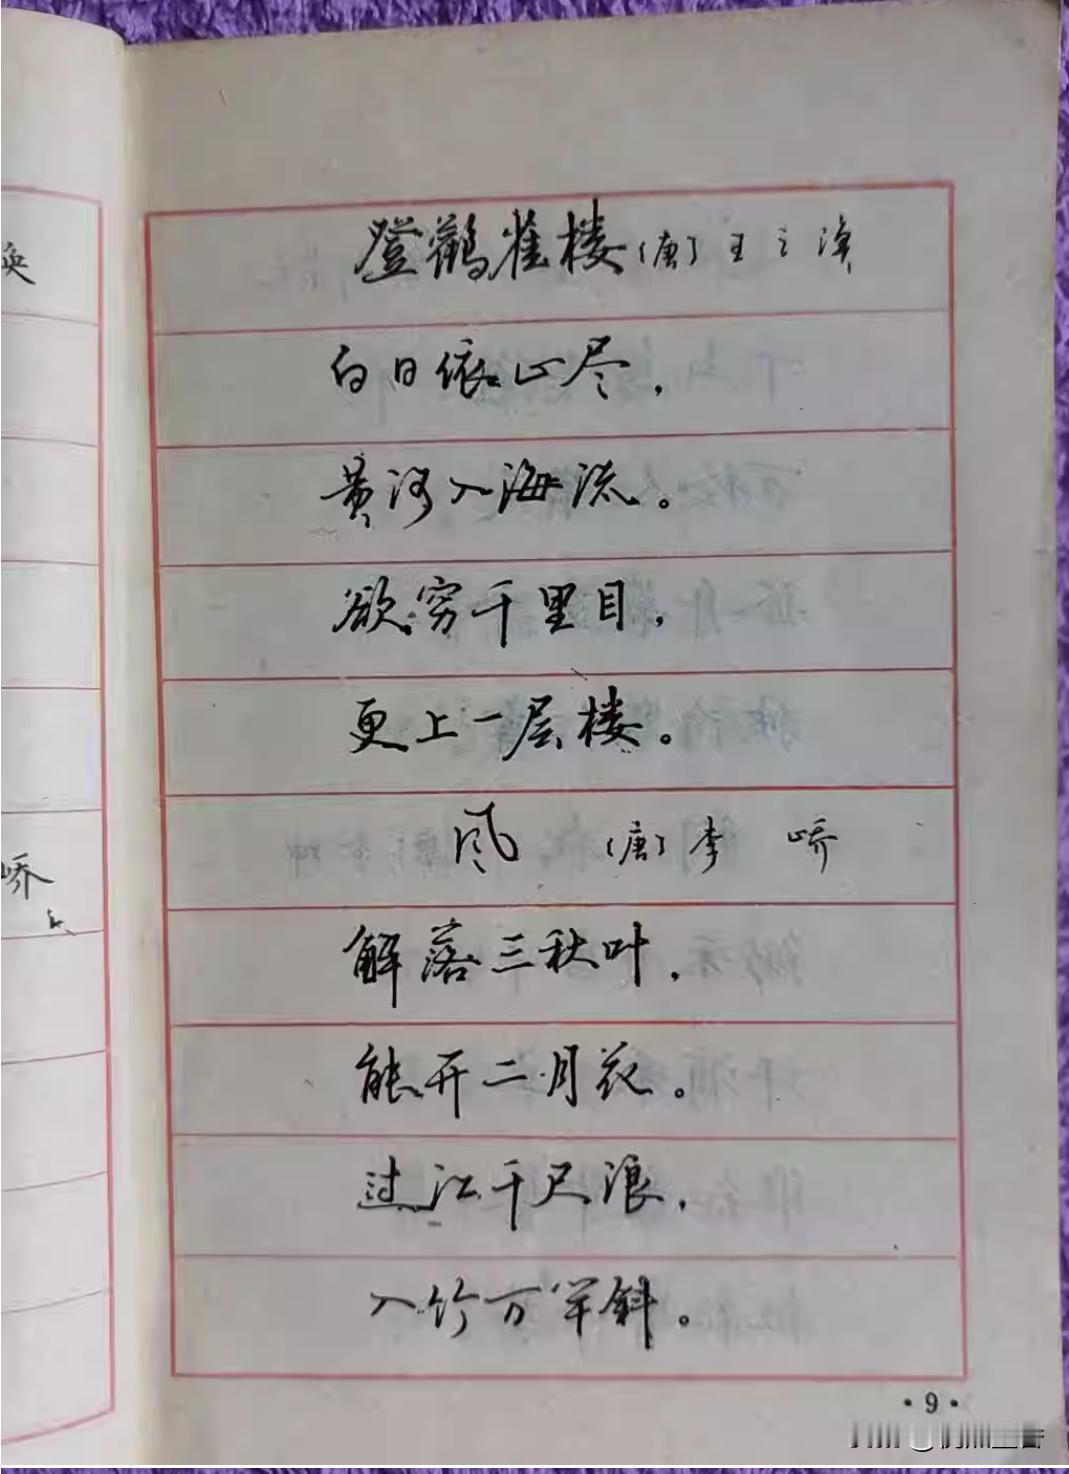 登鹳雀楼（唐）王之涣
白日依山尽，
黄河入海流。
欲穷千里目，
更上一层楼。
风（唐）李峤
解落三秋叶，
能开二月花。
过江千尺浪，
入竹万竿斜。
·9·
涣
峤